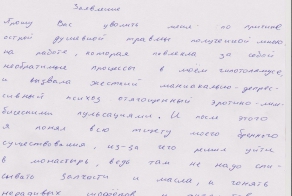 Заявление
Прошу Вас уволить меня по причине
острой душевной травмы полученной мною
на работе, которая повлекла за собой
необратимые процессы в моём гипоталамусе,
и вызвала жесткий маниакально-депрес-
сивный психоз отягощенный эротико-
бическими пульсациями. И после этого
я понял всю тщету моего бренного
существования, из-за чего решил уйти
в монастырь, ведь там не надо спи-
сывать запчасти и масла, и гонять
нерадивых